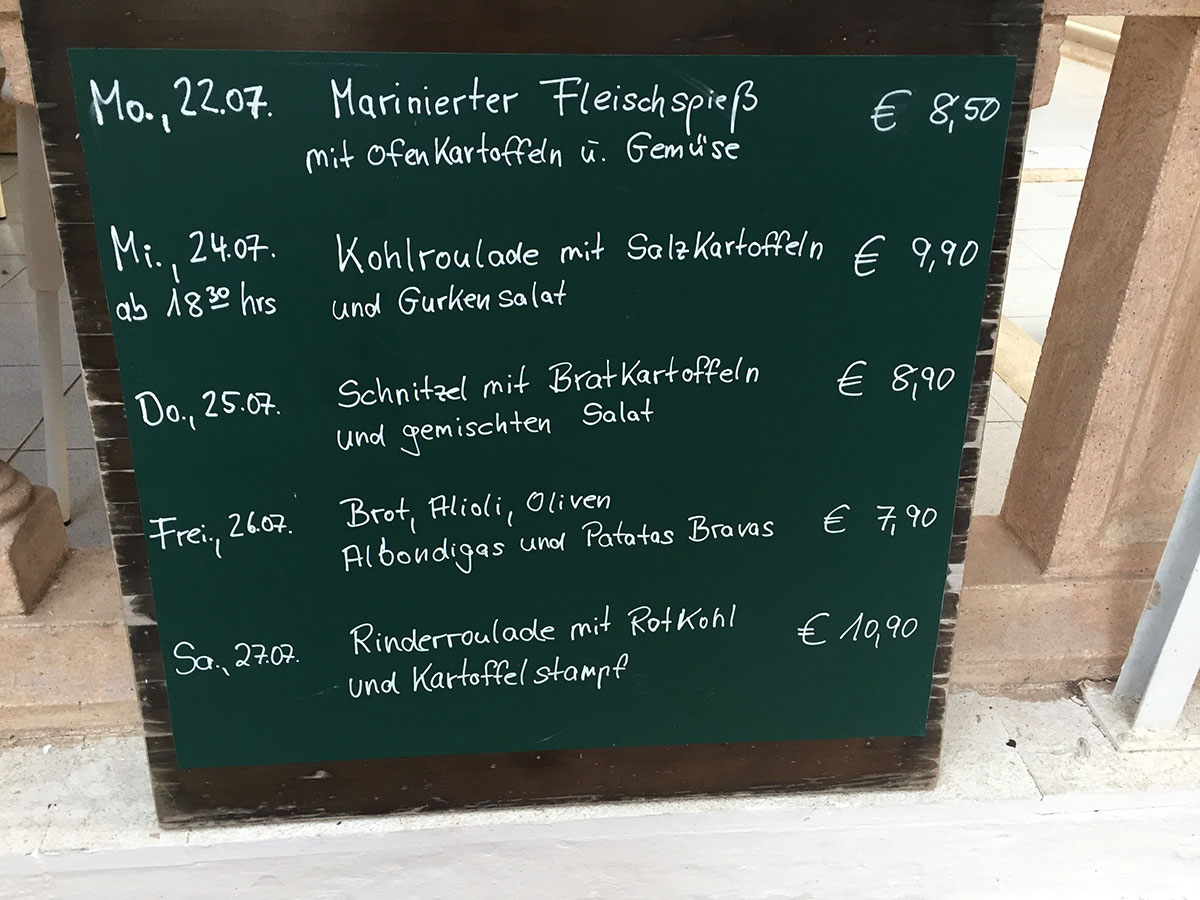 Mo., 22.07. Marinierter Fleischspieß € 8,50
mit Ofenkartoffeln u. Gemüse
Mi., 24.07. Kohlroulade mit Salzkartoffeln € 9,90
ab 18³⁰ hrs und Gurkensalat
Do., 25.07. Schnitzel mit Bratkartoffeln € 8,90
und gemischten Salat
Frei., 26.07. Brot, Alioli, Oliven € 7,90
Albondigas und Patatas Bravas
Sa., 27.07. Rinderroulade mit Rotkohl € 10,90
und Kartoffelstampf